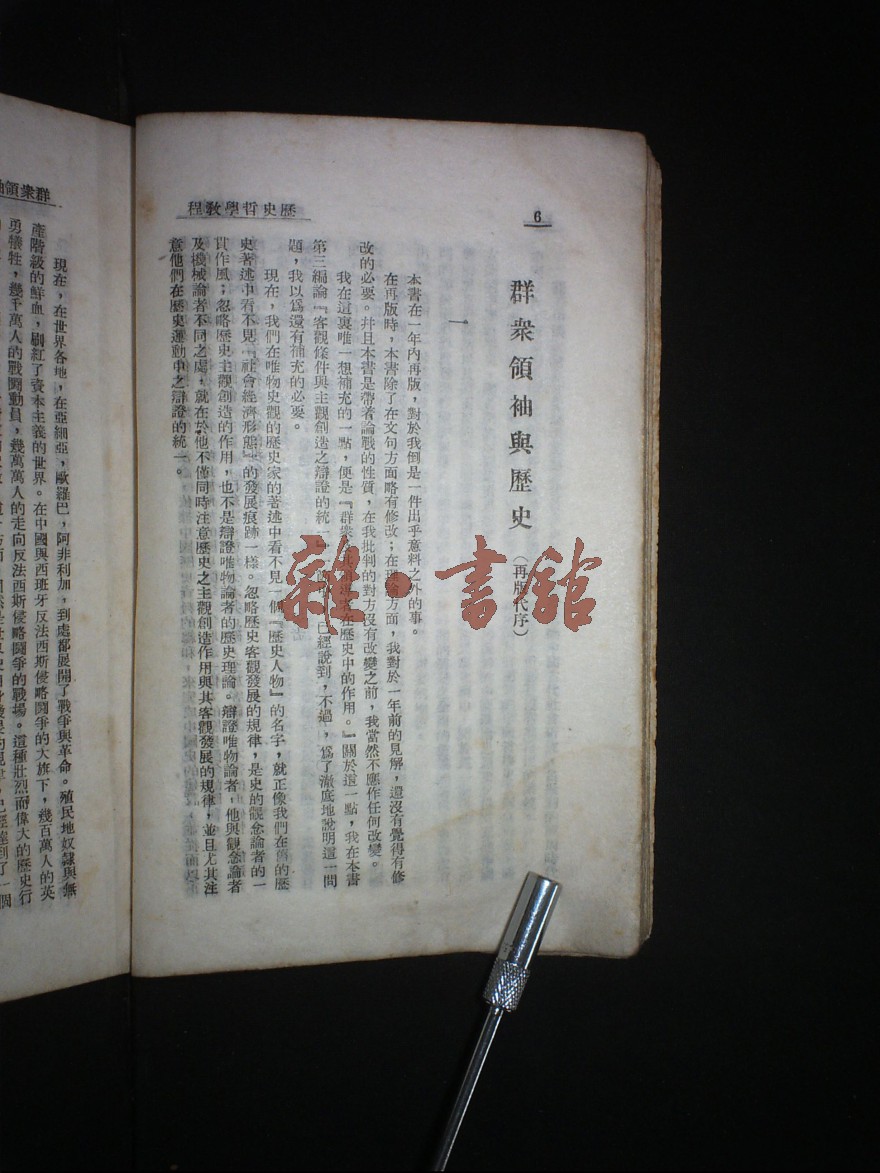 6
歷史哲學教程
群衆領袖與歷史(再版代序)
一
本書在一年內再版,對於我倒是一件出乎意料之外的事。
在再版時,本書除了在文句方面略有修改;在理論方面,我對於一年前的見解,還沒有覺得有修
改的必要。幷且本書是帶著論戰的性質,在我批判的對方沒有改變之前,我當然不應作任何改變。
我在這裏唯一想補充的一點,便是『群衆 在歷史中的作用。』關於這一點,我在本書
第三編論『客觀條件與主觀創造之辯證的統一』 已經說到,不過,爲了澈底地說明這一問
題,我以爲還有補充的必要。
現在,我們在唯物史觀的歷史家的著述中看不見一個『歷史人物』的名字,就正像我們在舊的歷
史著述中看不見『社會經濟形態』的發展痕跡一樣。忽略歷史客觀發展的規律,是史的觀念論者的一
貫作風;忽略歷史主觀創造的作用,也不是辯證唯物論者的歷史理論。辯證唯物論者,他與觀念論者
及機械論者不同之處,就在於他不僅同時注意歷史之主觀創造作用與其客觀發展的規律,並且尤其注
意他們在歷史運動中之辯證的統一。
群衆領袖
現在,在世界各地,在亞細亞,歐羅巴,阿非利加,到處都展開了戰爭與革命。殖民地奴隸與無
產階級的鮮血,刷紅了資本主義的世界。在中國與西班牙反法西斯侵略鬪爭的大旗下,幾百萬人的英
勇犧牲,幾千萬人的戰鬪動員,幾萬萬人的走向反法西斯侵略鬪爭的戰場。這種壯烈而偉大的歷史行
雜·書館